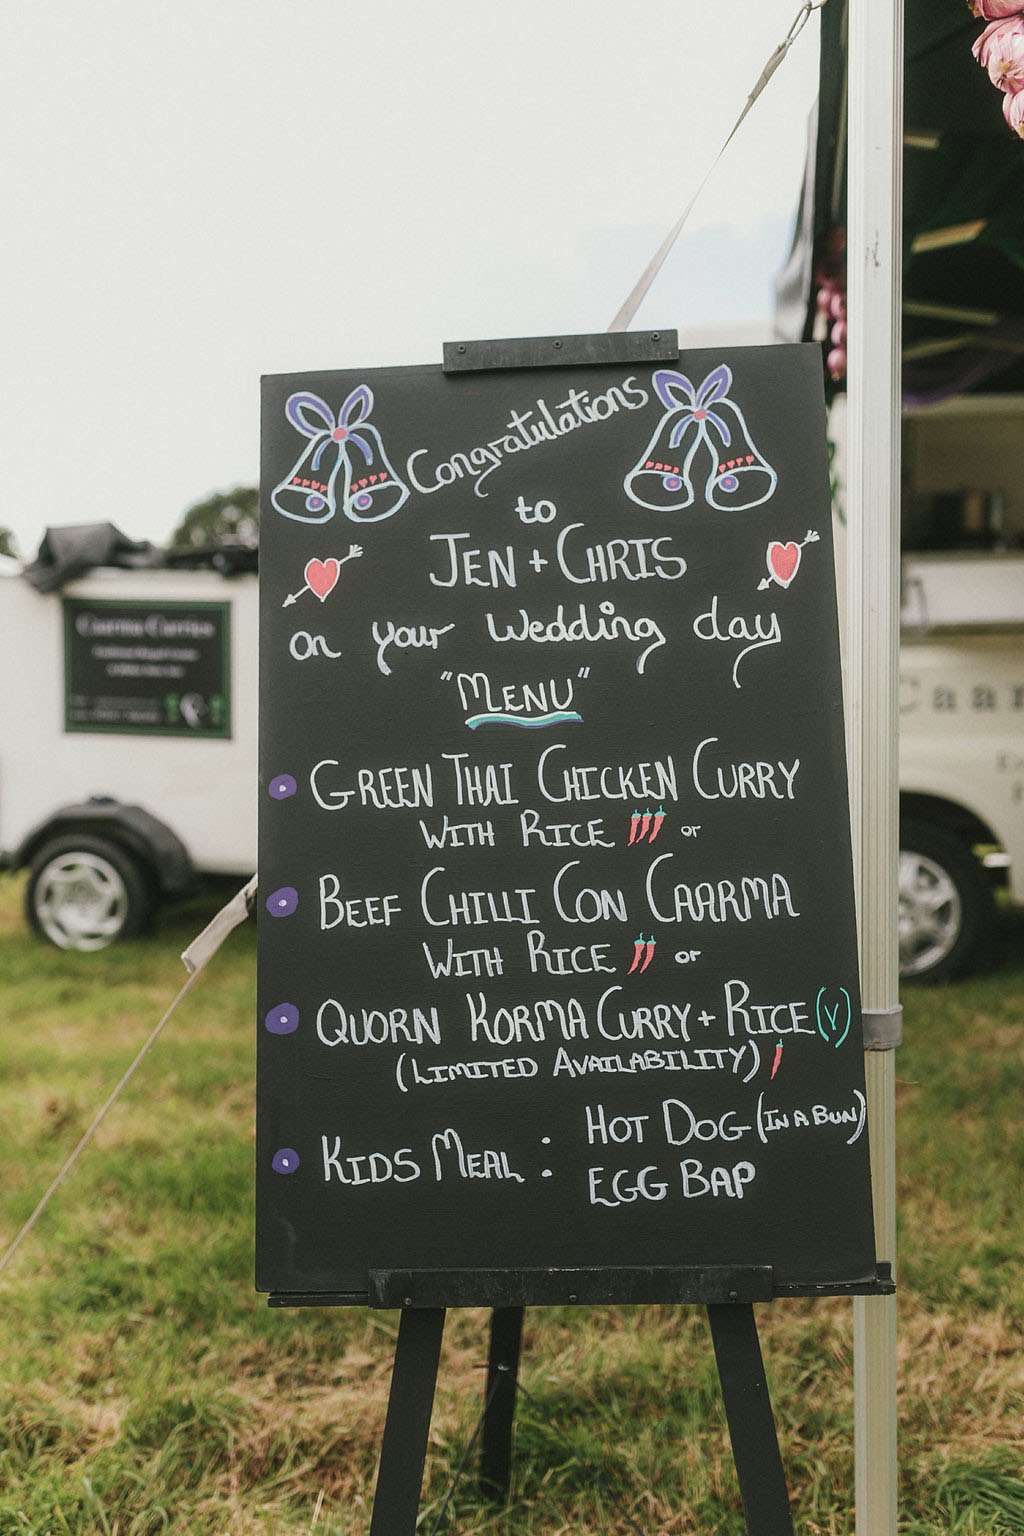 Congratulations
to
JEN + CHRIS
on your Wedding day
"MENU"
GREEN THAI CHICKEN CURRY
WITH RICE or
BEEF CHILLI CON CAARMA
WITH RICE or
QUORN KORMA CURRY + RICE (V)
(LIMITED AVAILABILITY)
KIDS MEAL : HOT DOG (IN A BUN)
EGG BAP
Caarma Curries
Caar